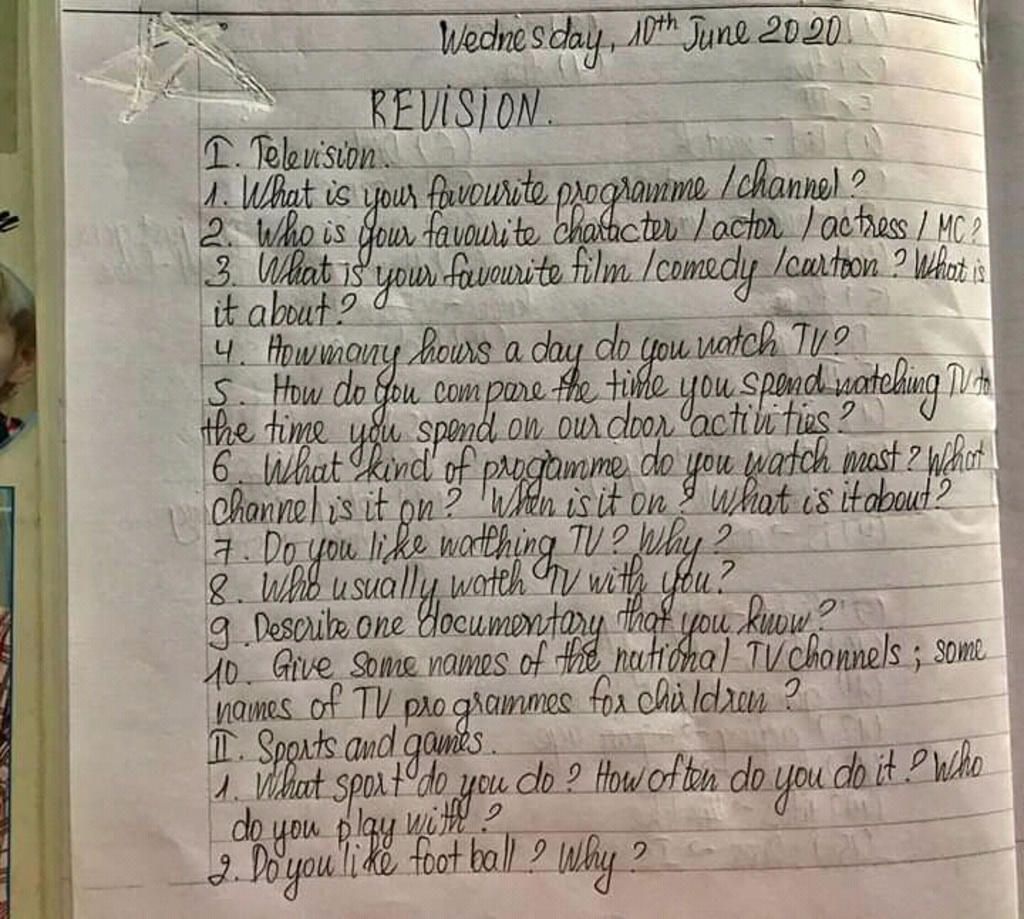 Wednesday, 10th June 2020.
REVISION.
I. Television.
1. What is your favourite programme / channel?
2. Who is your favourite character / actor / actress / MC?
3. What is your favourite film / comedy / cartoon? What is
it about?
4. How many hours a day do you watch TV?
5. How do you compare the time you spend watching TV to
the time you spend on our door activities?
6. What kind of progamme do you watch most? What
channel is it on? When is it on? What is it about?
7. Do you like watthing TV? Why?
8. Who usually watch TV with you?
9. Describe one documentary that you know?
10. Give some names of the national TV channels; some
names of TV programmes for children?
II. Sports and games.
1. What sport do you do? How often do you do it? Who
do you play with?
2. Do you like foot ball? Why?